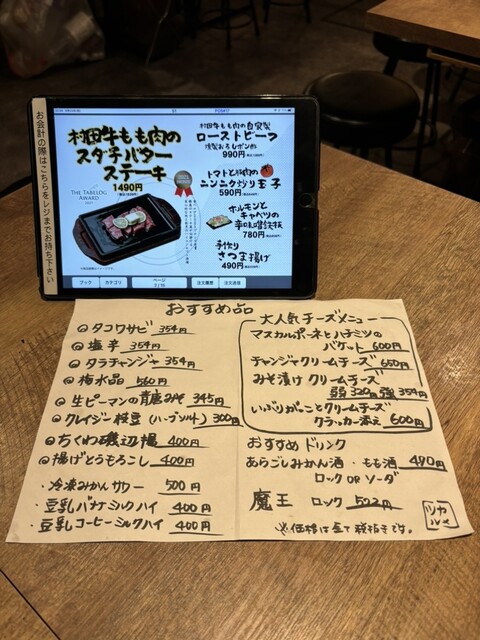 お会計の際はこちらをレジまでお持ち下さい
村田牛もも肉の
スダチバター
ステーキ
1490円
THE TABELOG
AWARD
村田牛もも肉の自家製
ローストビーフ
燻製おろしポン酢
990円
トマトと豚肉の
ニンニク炒り玉子
590円
ホルモンと
キャベツの
辛味噌鉄板
780円
手作り
さつま揚げ
490円
ブック
カテゴリ
ページ
注文履歴
注文送信
おすすめ品
◎タコワサビ 354円
◎塩辛 354円
◎タラチャンジャ 354円
◎梅水晶 560円
◎生ピーマンの青唐みそ 345円
◎クレイジー枝豆(ハーブソルト) 300円
◎ちくわ磯辺揚 400円
◎揚げとうもろこし 400円
・冷凍みかんサワー 500円
・豆乳バナナミルクハイ 400円
・豆乳コーヒーミルクハイ 400円
大人気チーズメニュー
マスカルポーネとハチミツの
バゲット 600円
チャンジャクリームチーズ 650円
みそ漬けクリームチーズ
弱320円 強354円
いぶりがっことクリームチーズ
クラッカー添え 600円
おすすめドリンク
あらごしみかん酒・もも酒 490円
ロック OR ソーダ
魔王 ロック 522円
※価格は全て税抜きです。